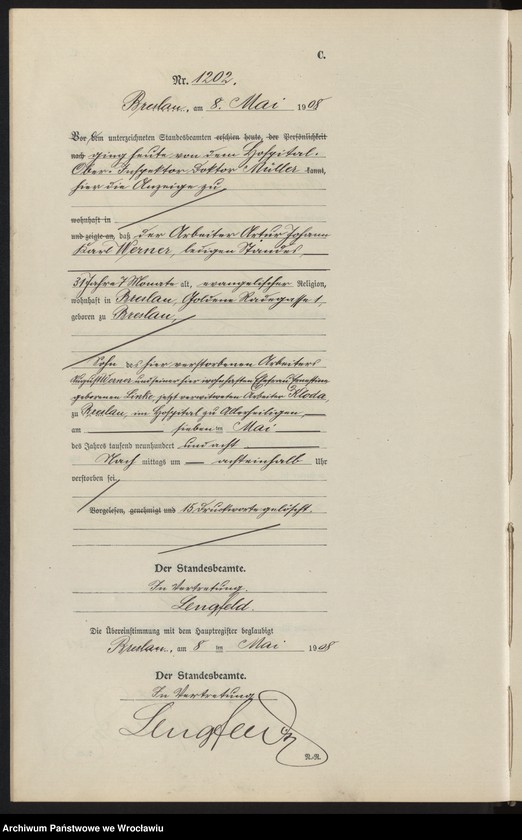 C.
Nr. 1202.
Breslau, am 8. Mai 1908
Vor dem unterzeichneten Standesbeamten erschien heute, der Persönlichkeit
nach ging heute von dem Hospital-
Ober-Inspektor Doktor Müller kannt,
hier die Anzeige zu
wohnhaft in
und zeigte an, daß der Arbeiter Artur Johann
Karl Werner, ledigen Standes,
31 Jahre 7 Monate alt, evangelischer Religion,
wohnhaft in Breslau, Goldene Radegasse 1,
geboren zu Breslau,
Sohn des hier verstorbenen Arbeiters
August Werner und seiner hier wohnhaften Ehefrau Ernestine
geborenen Linke, jetzt verwitweten Arbeiter Kloda
zu Breslau, im Hospital zu Allerheiligen,
am sieben ten Mai
des Jahres tausend neunhundert und acht
Nach mittags um achteinhalb Uhr
verstorben sei.
Vorgelesen, genehmigt und 15 Druckworte gelöscht.
Der Standesbeamte.
In Vertretung
Lengfeld.
Die Übereinstimmung mit dem Hauptregister beglaubigt
Breslau, am 8 ten Mai 1908
Der Standesbeamte.
In Vertretung
Lengfeld
Archiwum Państwowe we Wrocławiu